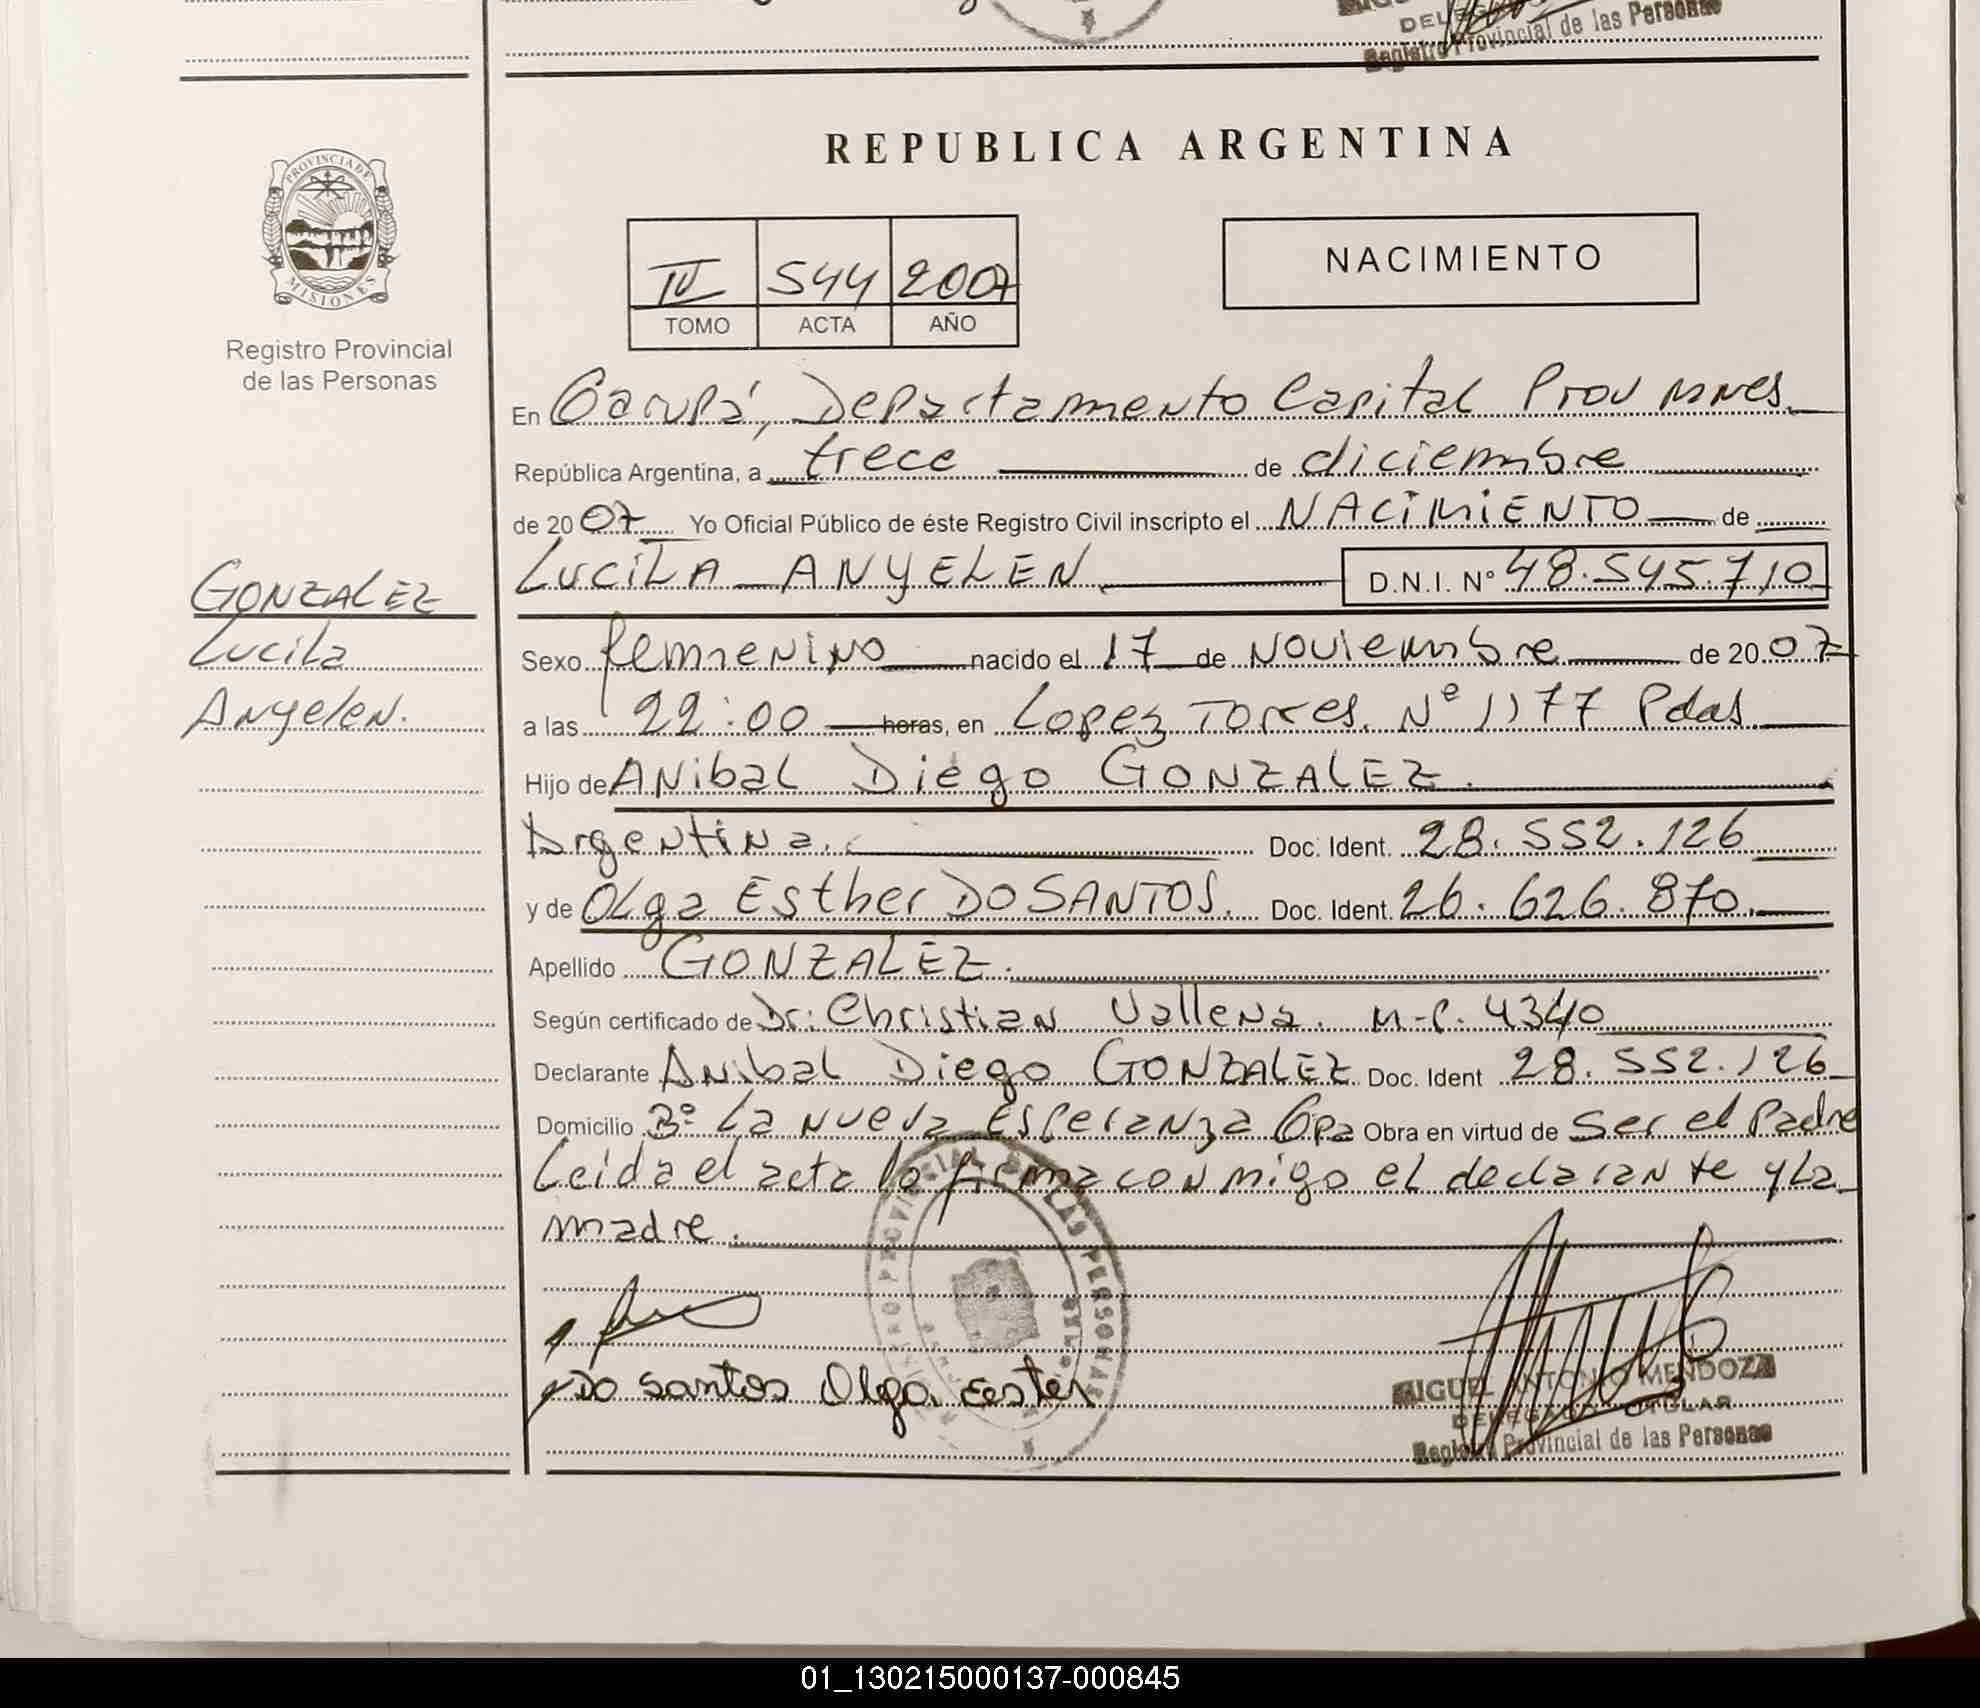 DELEGADO
Registro Provincial de las Personas
REPUBLICA ARGENTINA
PROVINCIA DE
MISIONES
Registro Provincial
de las Personas
IV 544 2007
TOMO ACTA AÑO
NACIMIENTO
En Garupá, Departamento Capital Prov Mnes.
República Argentina, a trece de diciembre
de 2007 Yo Oficial Público de éste Registro Civil inscripto el NACIMIENTO de
LUCILA ANYELEN D.N.I. N° 48.545.710
GONZALEZ
Lucila
Anyelen.
Sexo femenino nacido el 17 de Noviembre de 2007
a las 22:00 horas, en Lopez Torres. N° 1177 Pdas
Hijo de Anibal Diego GONZALEZ.
Argentina. Doc. Ident. 28.552.126
y de Olga Esther DO SANTOS. Doc. Ident. 26.626.870.
Apellido GONZALEZ.
Según certificado de Dr: Christian Vallena. M-P. 4340
Declarante Anibal Diego GONZALEZ Doc. Ident 28.552.126
Domicilio B° La nueva Esperanza Gpa Obra en virtud de ser el Padre
Leida el acta la firma conmigo el declarante y La
madre.
Do santos Olga Ester
MIGUEL ANTONIO MENDOZA
DELEGADO TITULAR
Registro Provincial de las Personas
01_130215000137-000845